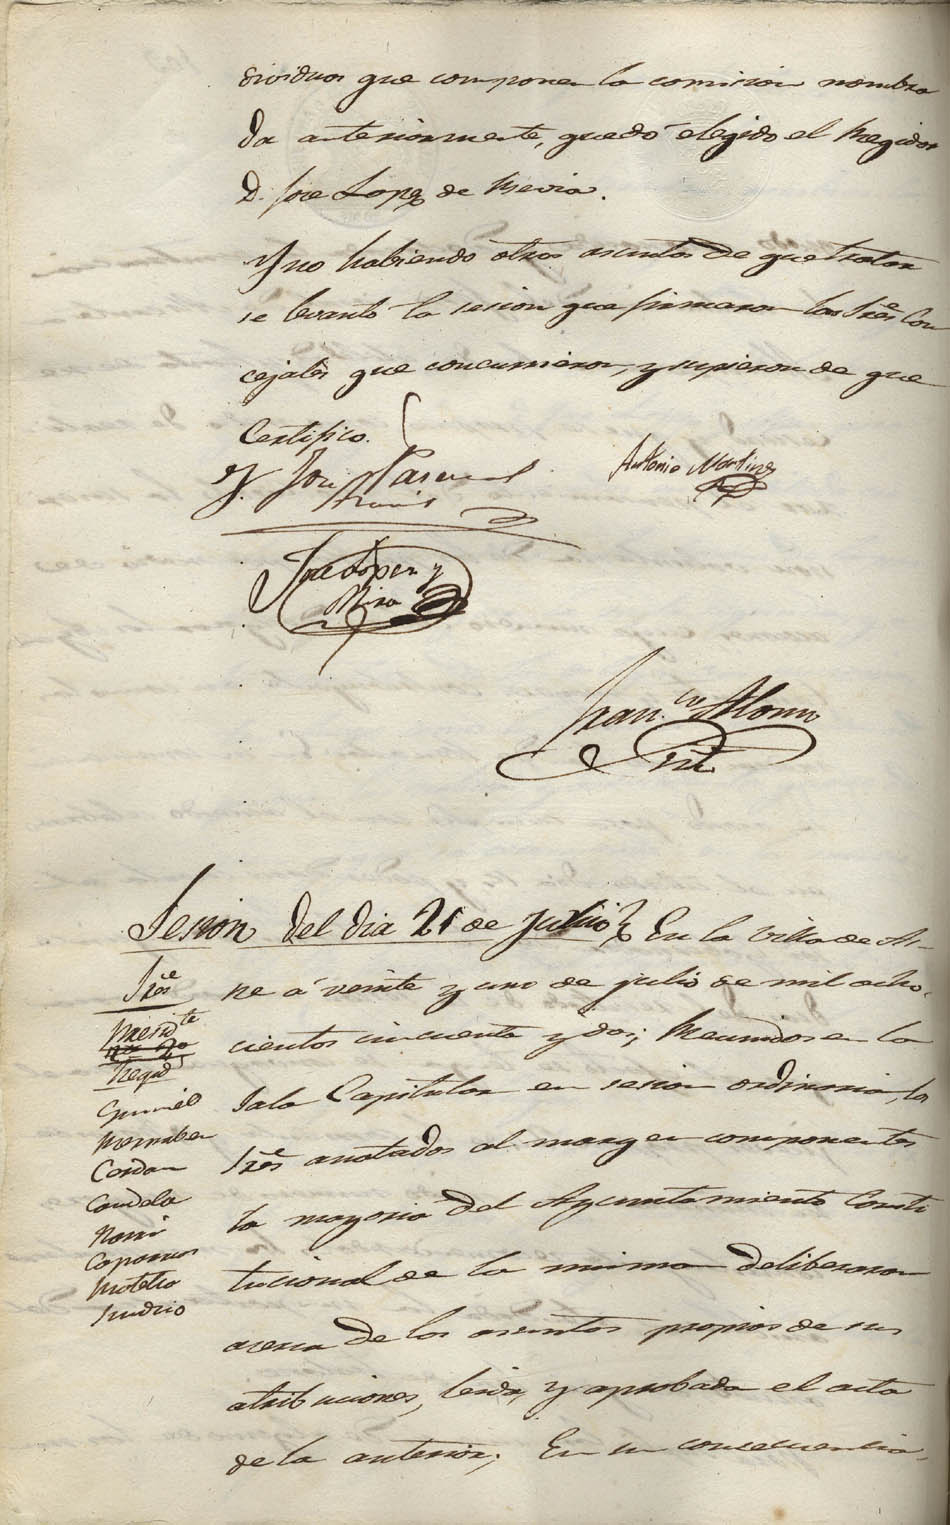 dividuos que componen la comision nombra
da anteriormente, quedó elegido el Regidor
D. Jose Lopez de
Y no habiendo otros asuntos de que tratar
se levantó la sesion que firmaron los Sres Con
cejales que concurrieron, y supieron de que
Certifico.
José Pascual
Antonio Martinez
Jose Lopez y
Mira
Fran.co Alonso
Sesion del dia 21 de Julio
Sres
Presid.te
Regid.s
Bernabeu
Cerdan
Candela
Caparros
Sindico
En la Villa de As-
pe á veinte y uno de julio de mil ocho-
cientos cincuenta y dos; Reunidos en la
Sala Capitular en sesion ordinaria, los
Sres anotados al margen componentes
la mayoria del Ayuntamiento Consti
tucional de la misma deliberaron
acerca de los asuntos propios de sus
atribuciones, leida, y aprobada el acta
de la anterior; En su consecuencia,